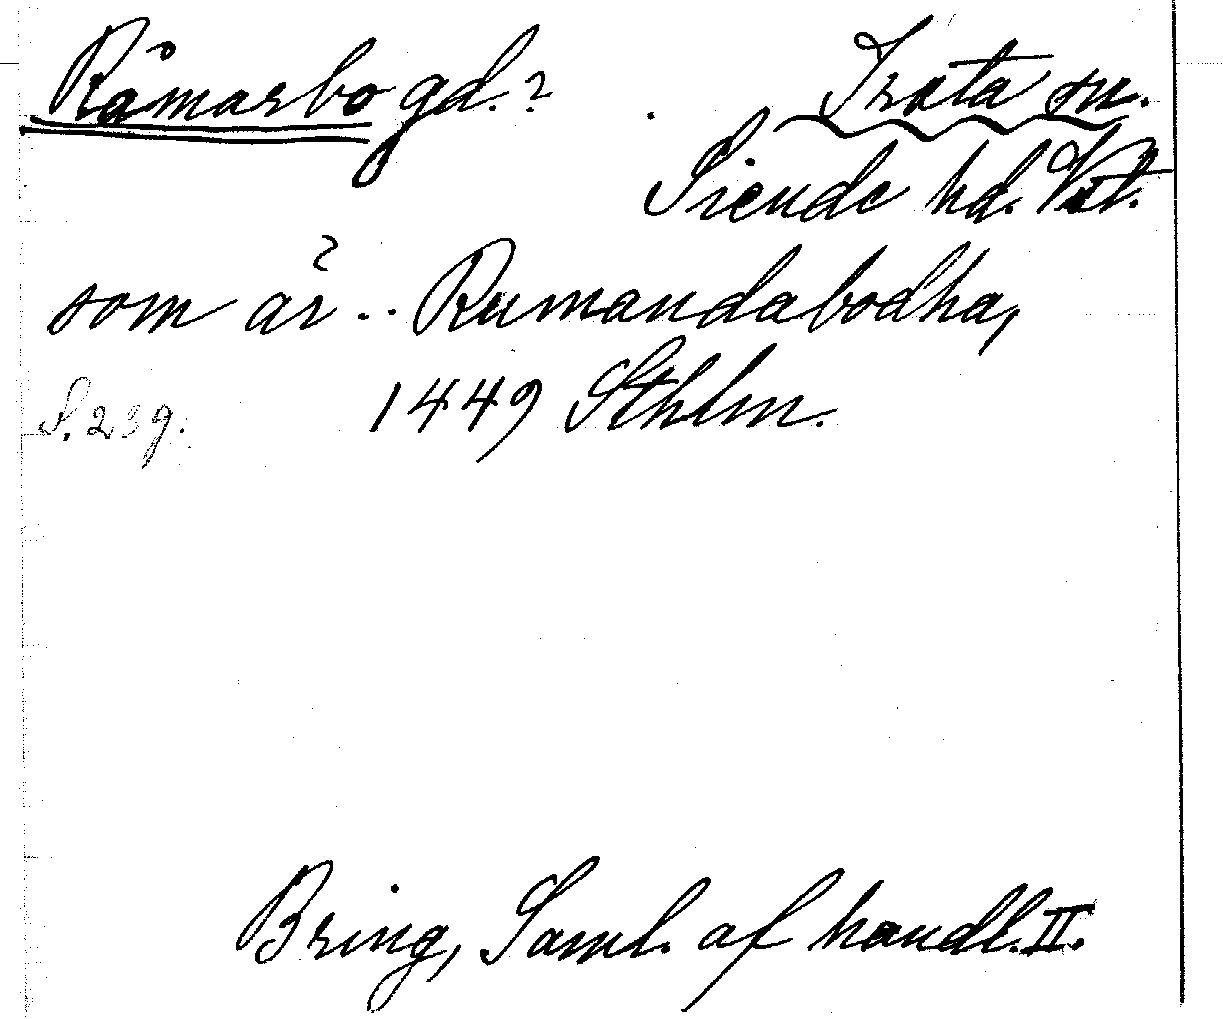 Råmarbo gd.? Irsta sn.
Siende hd. Vstm.
som är .. Rumandabodha,
S. 239. 1449 Sthlm.
Bring, Saml. af handl. II.